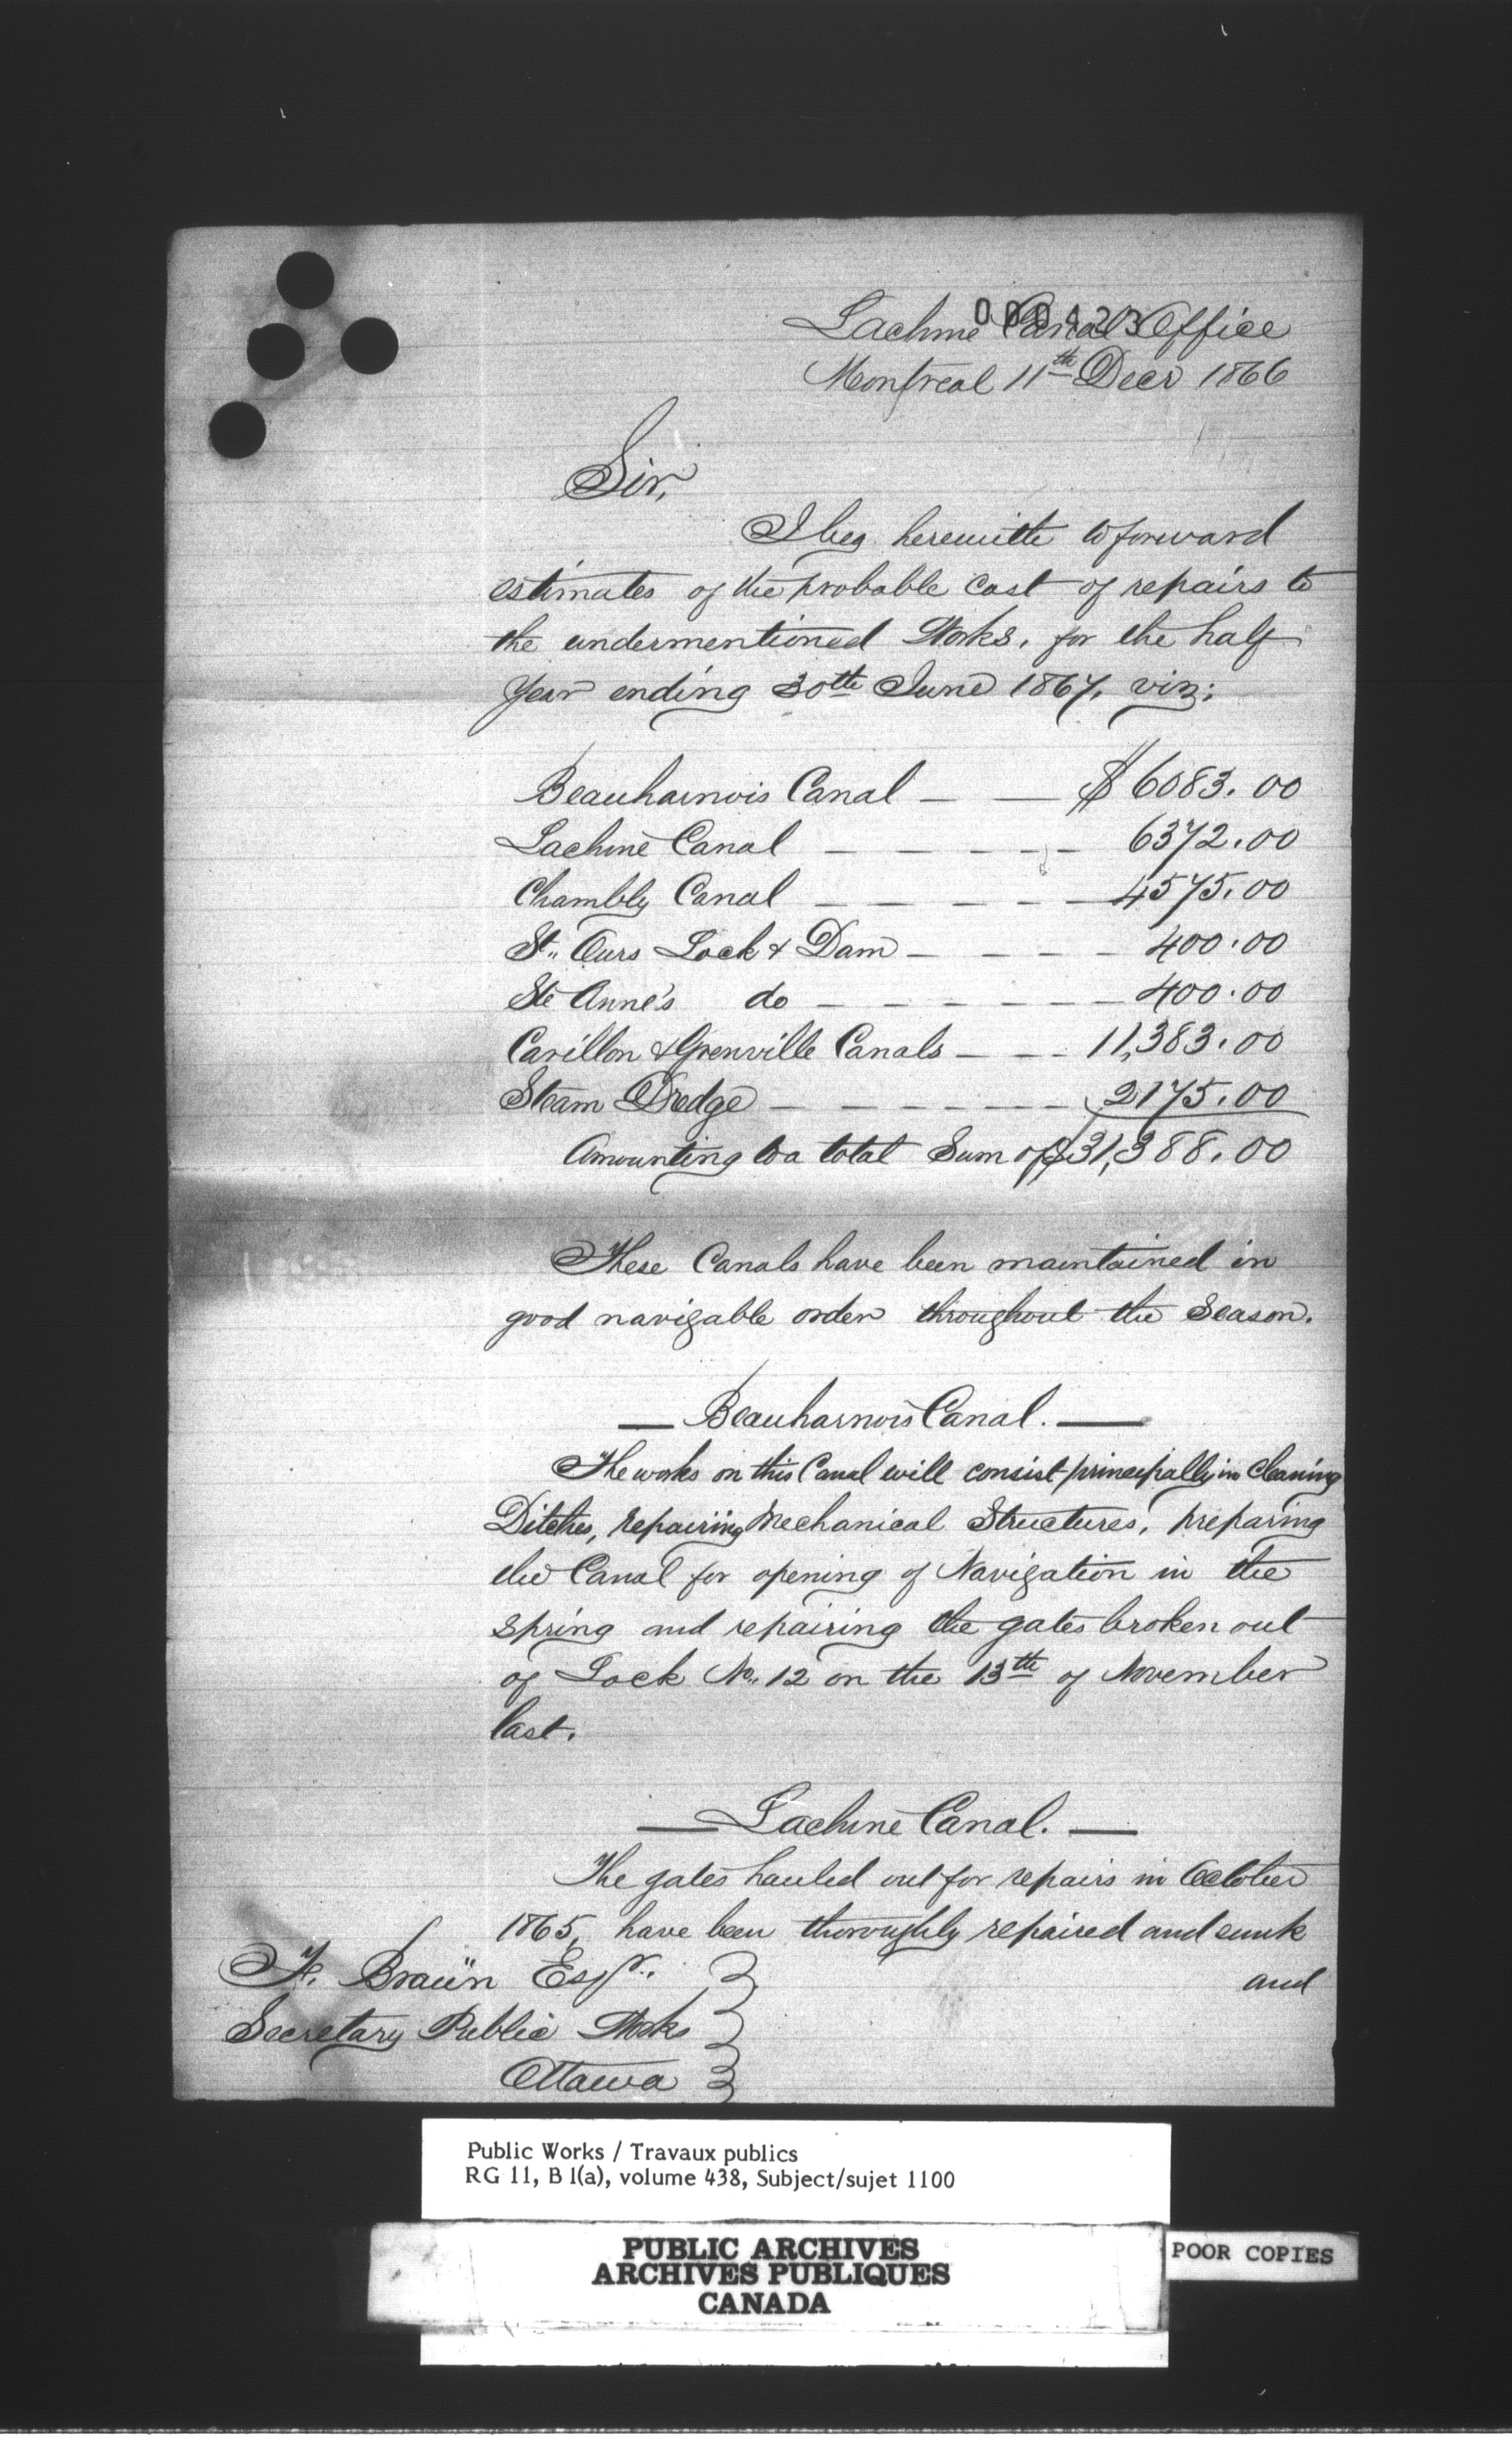 000423
Lachine Canal Office
Montreal 11th Decr 1866
Sir,
I beg herewith to forward
estimates of the probable cost of repairs to
the undermentioned Works, for the half
Year ending 30th June 1867, viz:
Beauharnois Canal — — $6083.00
Lachine Canal — — — — — 6372.00
Chambly Canal — — — — — 4575.00
St. Ours Lock & Dam — — — — 400.00
Ste Anne's do — — — — — — 400.00
Carillon & Grenville Canals — — — 11,383.00
Steam Dredge — — — — — — — 2175.00
Amounting to a total Sum of $31,388.00
These Canals have been maintained in
good navigable order throughout the Season.
— Beauharnois Canal. —
The works on this Canal will consist principally in cleaning
Ditches, repairing Mechanical Structures, preparing
the Canal for opening of Navigation in the
spring and repairing the gates broken out
of Lock No. 12 on the 13th of November
last.
— Lachine Canal. —
The gates hauled out for repairs in October
1865, have been thoroughly repaired and sunk
and
F. Braün Esqr.
Secretary Public Works
Ottawa
Public Works / Travaux publics
RG 11, B 1(a), volume 438, Subject/sujet 1100
PUBLIC ARCHIVES
ARCHIVES PUBLIQUES
CANADA
POOR COPIES